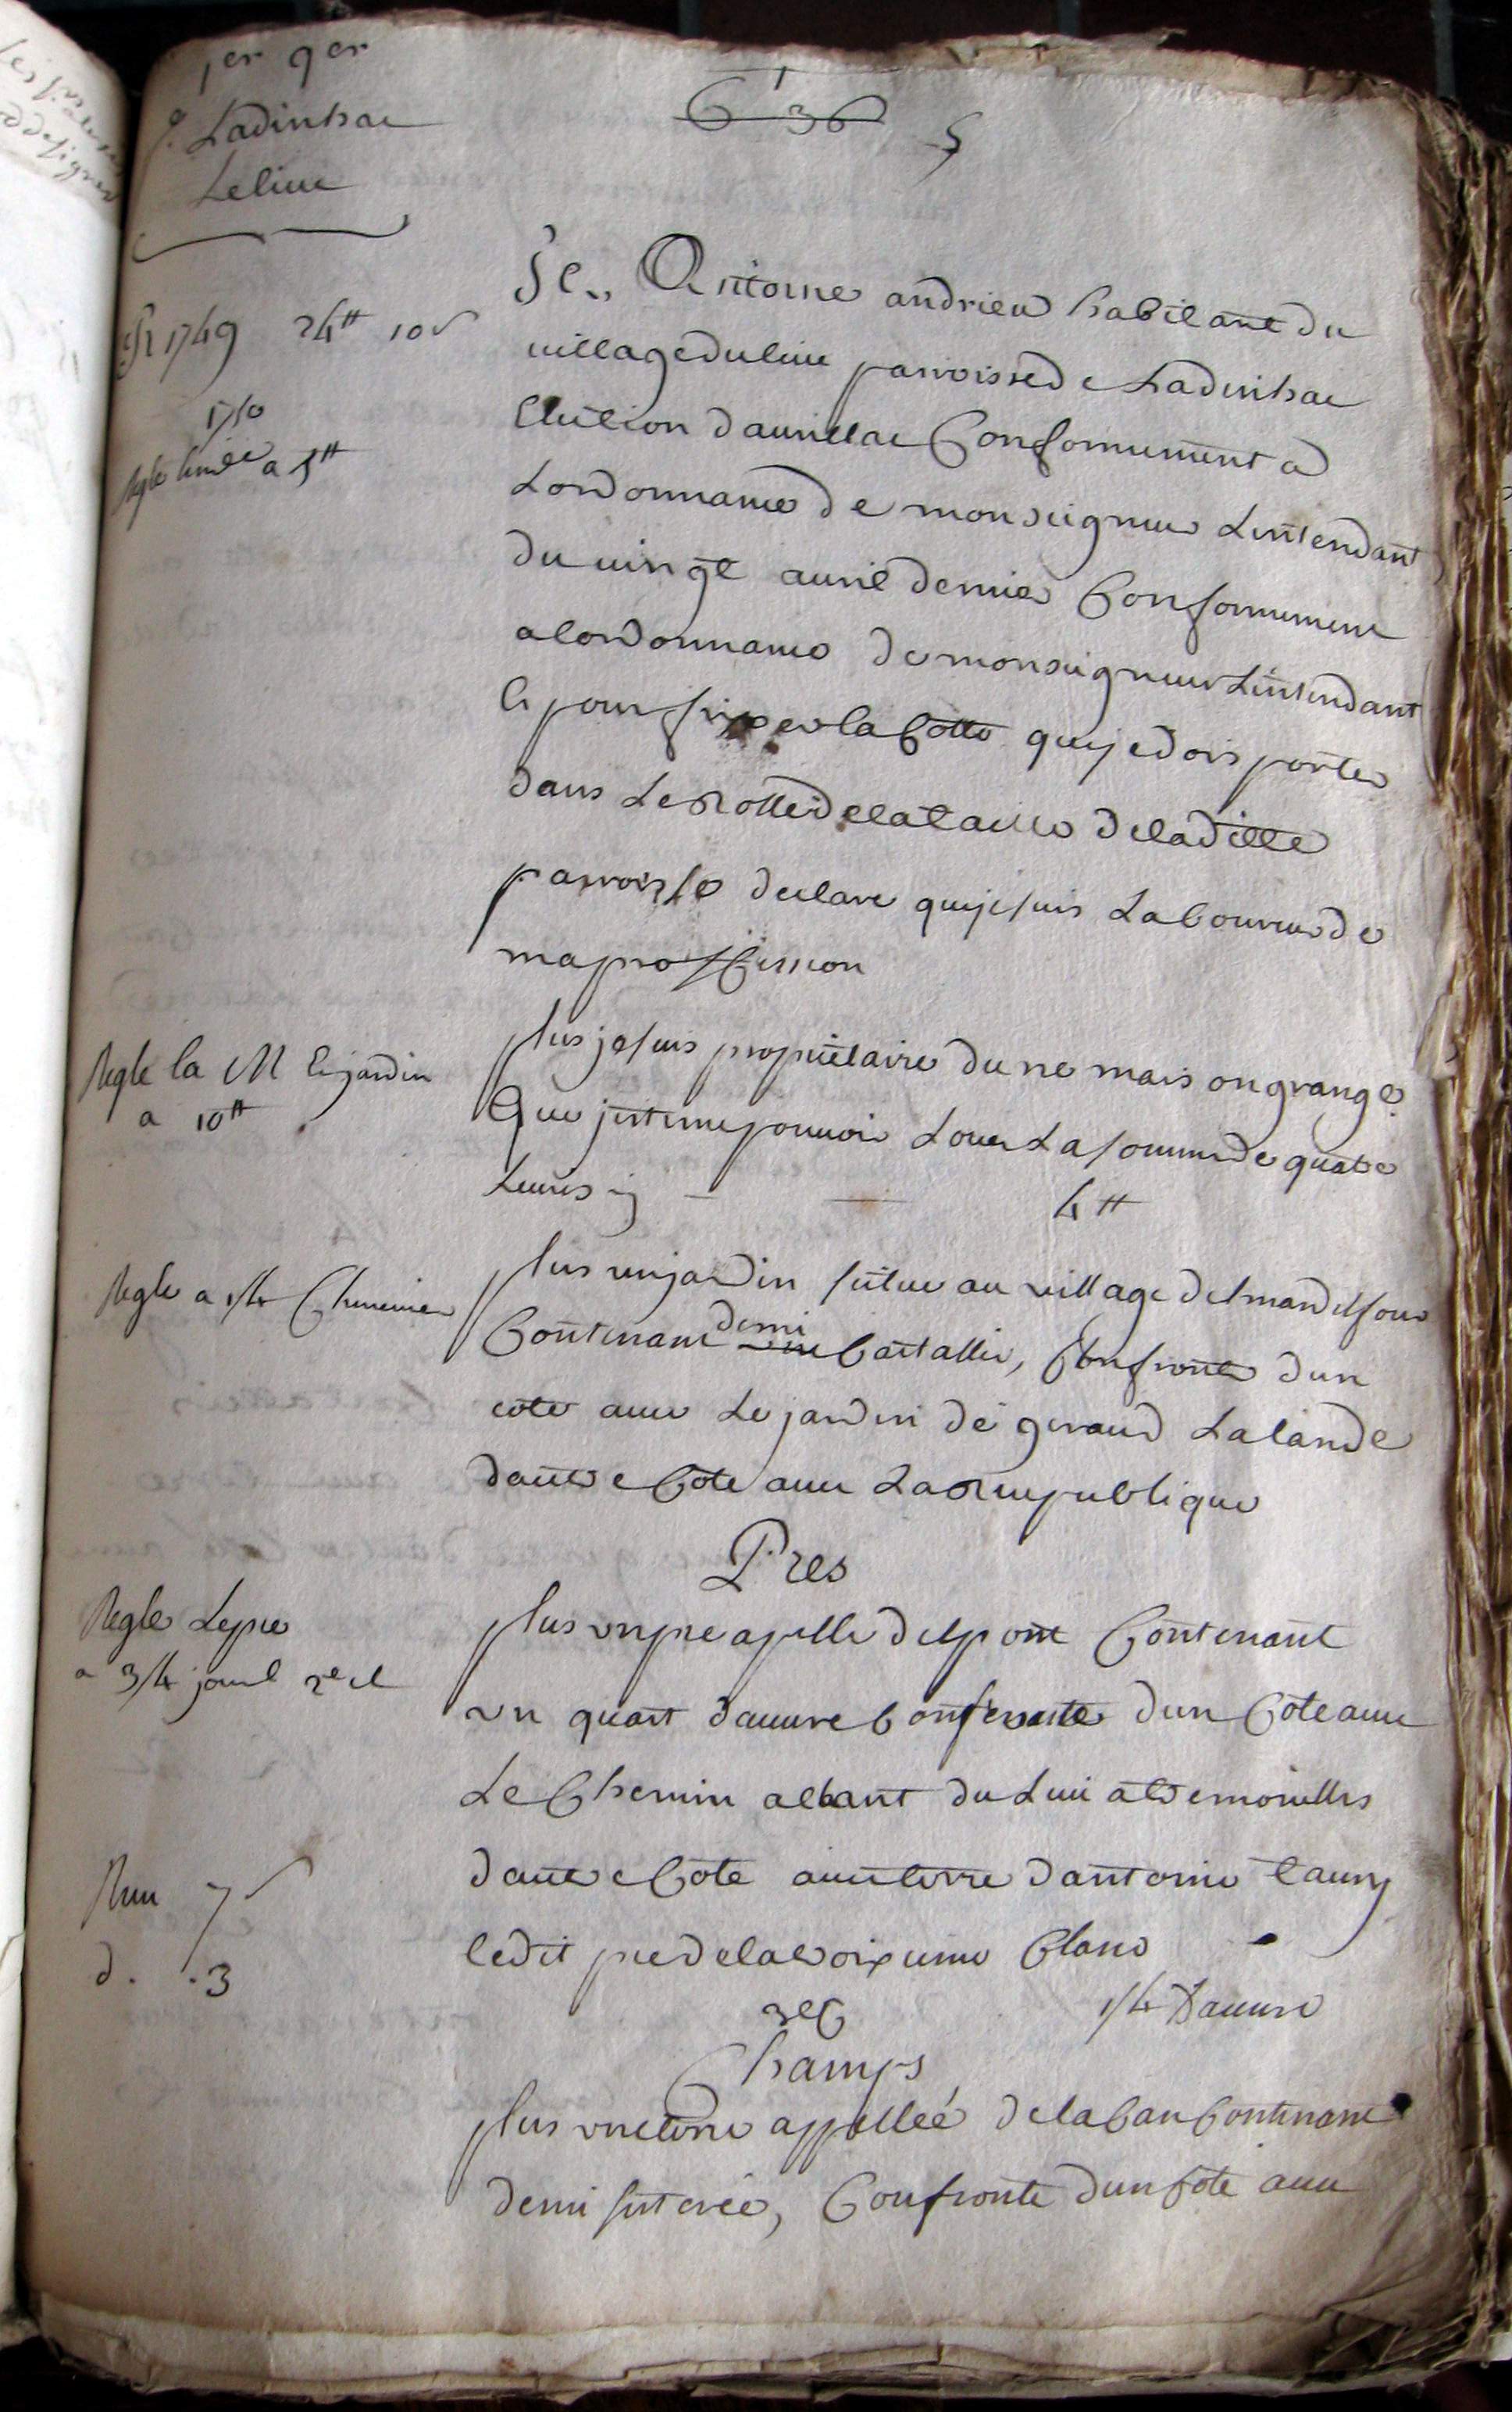 1er 9er
Ladinhac
Leliue
636
5
1749 24tt 10s
1750
a 5tt
Je, Antoine andrieu habitant du
village duliue parroisse de Ladinhac
Election daurillac Conformement a
Lordonnance de monseigneur Lintendant
du uingt auril dernier Conformement
a lordonnance de monseigneur Lintendant
et pour fixer la Cotte que je dois porter
dans Le Rolle de la taille de ladille
parroisse declare que je suis Laboureur de
ma proffession
Regle la M et jardin
a 10tt
plus je suis proprietaire dune maison grange
que jestime pouuoir Louer La somme de quatre
Liures cy — — 4tt
Regle a 1/4 Cheneuier
plus un jardin situe au village delmandilsour
Contenant demi Cartallee, Confronte dun
cote auec Le jardin de geraud Lalande
dautre Cote auec La Rue publique
Pres
Regle Le pre
a 3/4 journl 2e cl
plus vn pre apelle delpont Contenant
vn quart dœuure Confronte dun Cote auec
Le Chemin allant du Liui al demoielles
dautre Cote auec terre dantoine taury
ledit pre de la croix eime Blanc
1/4 Dœuure
Reuu 7s
d. .3
Champs
plus vne terre appellée de la Cau Contenant
demi seterée, Confronte dun Cote auec